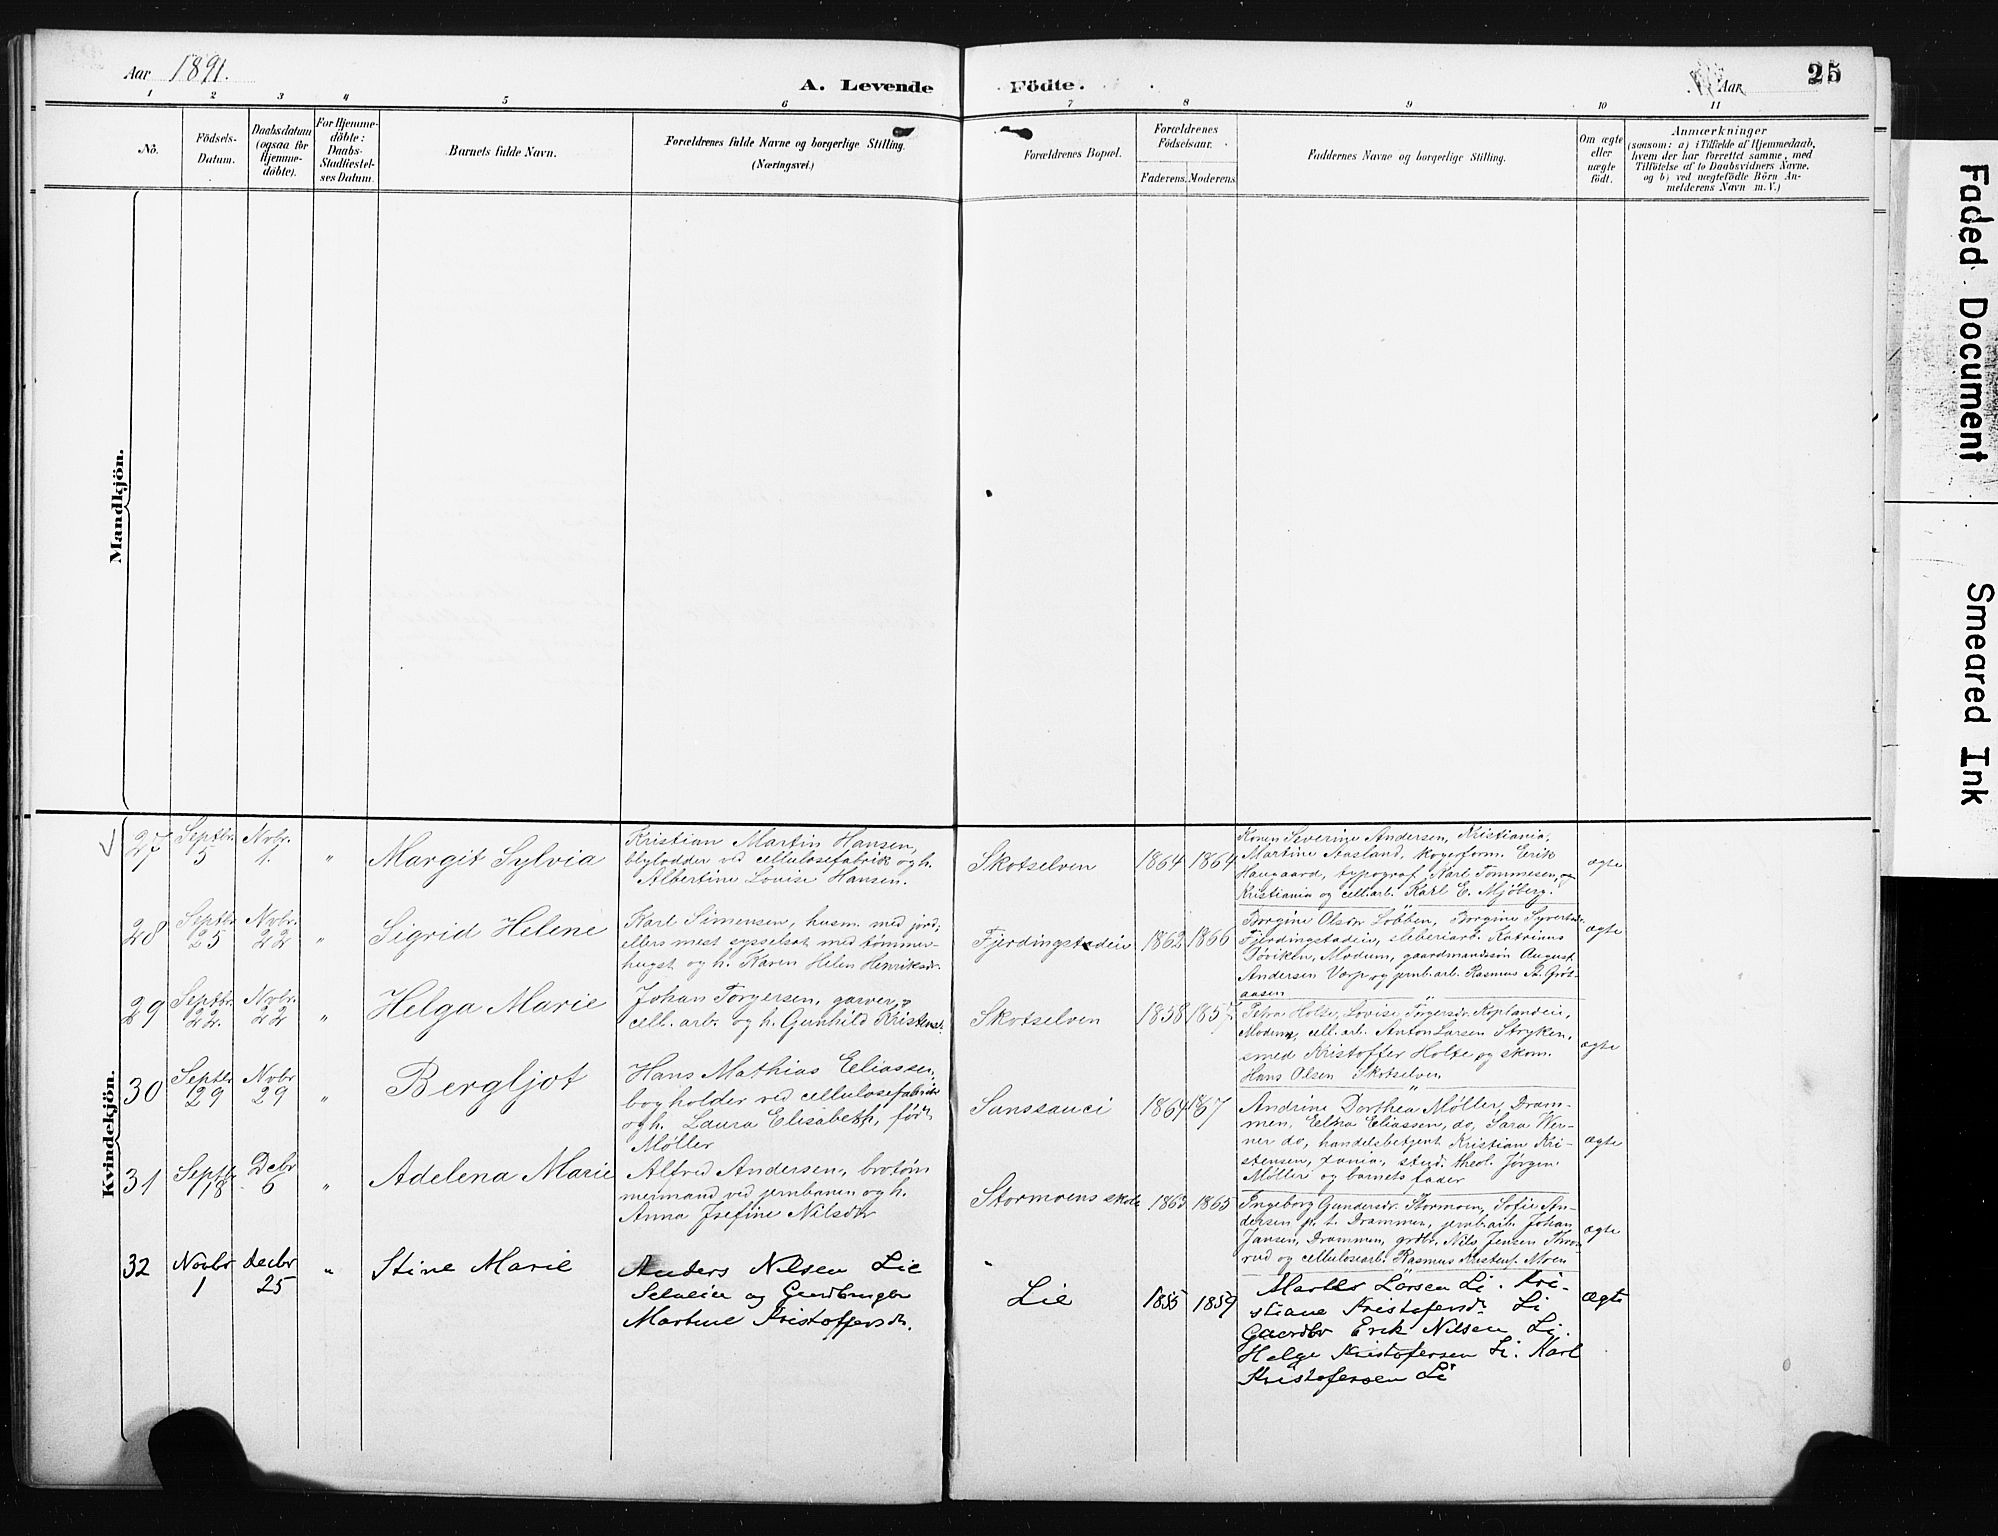 Aar 1891.
A. Levende Födte.
Aar 25
1 2 3 4 5 6 7 8 9 10 11
Nô.
Födsels-
Datum.
Daabsdatum
(ogsaa for
Hjemme-
döbte).
For Hjemme-
döbte:
Daabs-
Stadfæstel-
ses Datum.
Barnets fulde Navn.
Forældrenes fulde Navne og borgerlige Stilling.
(Næringsvei.)
Forældrenes Bopæl.
Forældrenes
Födselsaar.
Faderens. Moderens.
Faddernes Navne og borgerlige Stilling.
Om ægte
eller
uægte
födt.
Anmærkninger
(saasom: a) i Tilfælde af Hjemmedaab,
hvem der har forrettet samme, med
Tilföielse af to Daabsvidners Navne,
og b) ved uægtefödte Börn An-
melderens Navn m. V.)
Mandkjön.
Kvindekjön.
27 Septbr. 5 Novbr. 1. " Margit Sylvia
Kristian Martin Hansen,
blylodder ved cellulosefabrik og h.
Albertine Lovise Hansen.
Skotselven 1864 1864
Karen Severine Andersen, Kristiania,
Martine Aasland, kogerform. Erik
Haugaard, typograf Karl Tommesen,
Kristiania og cell.arb. Karl E. Mjöberg.
ægte
28 Septbr. 25 Novbr. 22 " Sigrid Helene
Karl Simensen, husm. med jord,
ellers mest sysselsat med tømmer-
hugst og h. Karen Helen Henriksdr.
Fjerdingstadeie 1862 1866
Borgine Olsdr Løbben, Borgine Syverts
Fjerdingstadeie, sleberiarb. Katrinus
Modum, gaardmandssön August
Andersen Vorp og jernb.arb. Rasmus A. Gröt-
aasen
ægte
29 Septbr. 22. Novbr. 22 " Helga Marie
Johan Torgersen, garver &
cell. arb. og h. Gunhild Kristensd.
Skotselven 1858
Petra Holte, Lovise Torgersdr. Koplandeie,
Modum, cell. arb. Anton Larsen Stryken,
smed Kristoffer Holte og skom.
Hans Olsen Skotselven
ægte
30 Septbr 29 Novbr 29 " Bergljot
Hans Mathias Eliassen,
bogholder ved cellulosefabrik
og h. Laura Elisabeth, fød
Møller
Sanssauci 1864 1867
Andrine Dorthea Møller, Dram-
men, Elka Eliassen, do, Sara Wer-
ner do, handelsbetjent Kristian Kri-
stensen, Xania, stud. theol. Jörgen
Møller og barnets fader
ægte
31 Septbr 18 Decbr 6 " Adelena Marie
Alfred Andersen, brotøm
mermand ved jernbanen og h.
Anna Josefine Nilsdr
Stormoens skole 1863 1865
Ingeborg Gundersdr. Stormoen, Sofie An-
dersen p. t. Drammen, jernb.arb. Johan
Jansen, Drammen, grdbr. Nils Jensen
rud og cellulosearb. Rasmus Kristens. Moen
ægte
32 Novbr 1 Decbr 25 " Stine Marie
Anders Nilsen Lie
Selveier og Gardbruger
Martine Kristoffersdr.
Lie 1855 1859
Larsen Li. Kri-
stiane Kristofersdr Li
Gaardbr Erik Nilsen Li.
Helge Kristofersen Li. Karl
Kristofersen Li
ægte
Faded Document
Smeared Ink